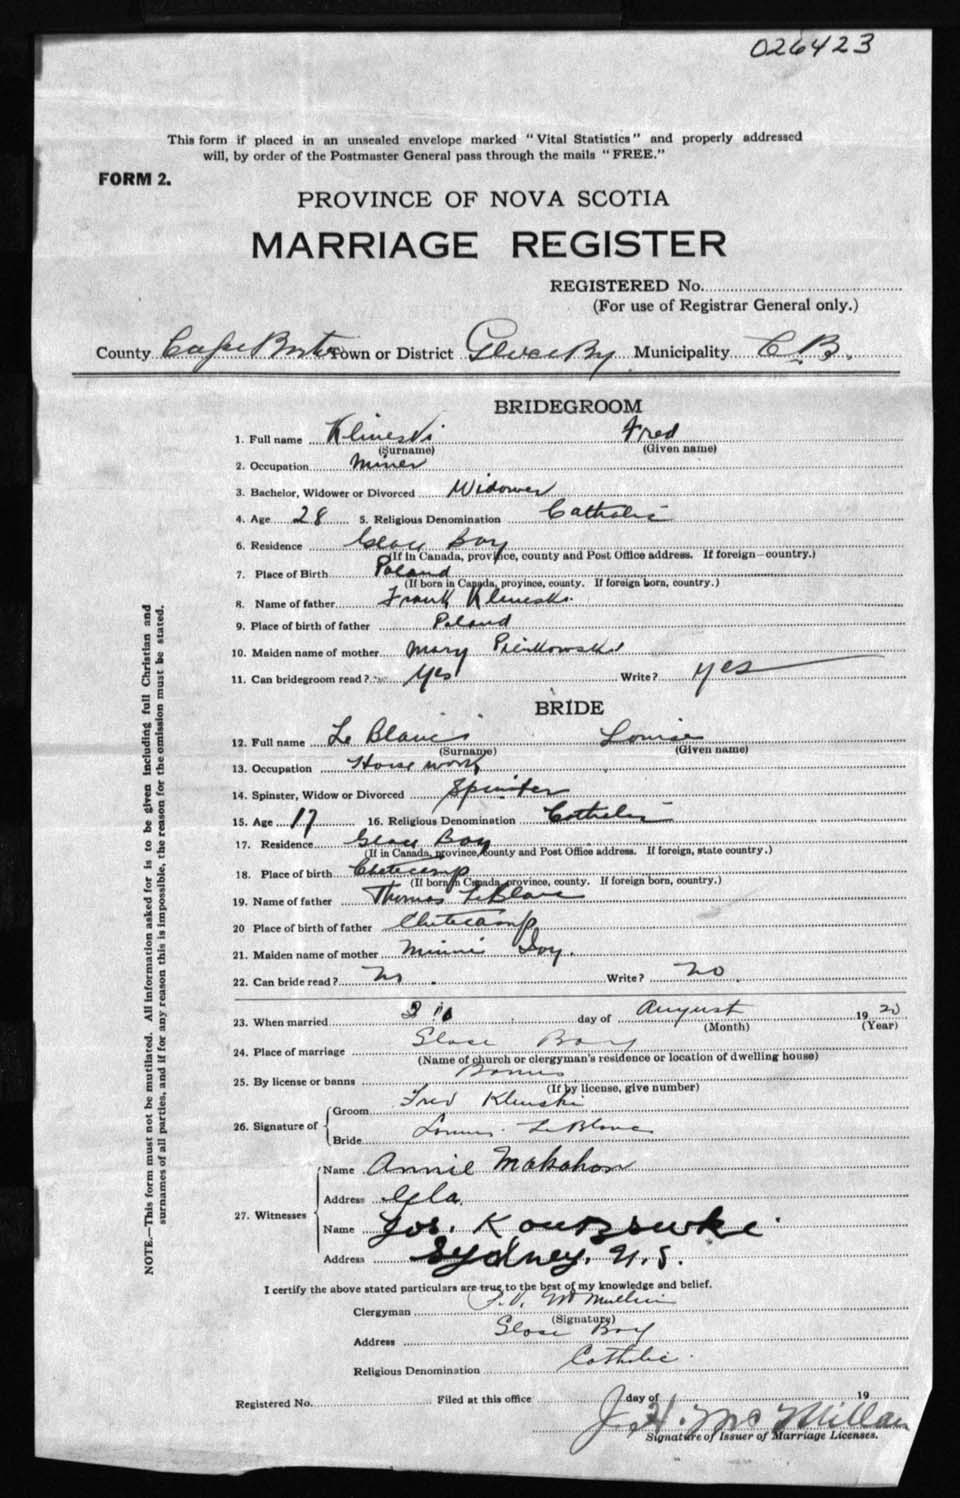 026423
This form if placed in an unsealed envelope marked "Vital Statistics" and properly addressed
will, by order of the Postmaster General pass through the mails "FREE."
FORM 2.
PROVINCE OF NOVA SCOTIA
MARRIAGE REGISTER
REGISTERED No.
(For use of Registrar General only.)
County Cape Breton Town or District Glace Bay Municipality C.B.
BRIDEGROOM
1. Full name Klineski Fred
(Surname) (Given name)
2. Occupation Miner
3. Bachelor, Widower or Divorced Widower
4. Age 28 5. Religious Denomination Catholic
6. Residence Glace Bay
(If in Canada, province, county and Post Office address. If foreign—country.)
7. Place of Birth Poland
(If born in Canada, province, county. If foreign born, country.)
8. Name of father Frank Klineski
9. Place of birth of father Poland
10. Maiden name of mother Mary Pienkowski
11. Can bridegroom read? Yes Write? yes
BRIDE
12. Full name Le Blanc Louise
(Surname) (Given name)
13. Occupation House work
14. Spinster, Widow or Divorced Spinster
15. Age 17 16. Religious Denomination Catholic
17. Residence Glace Bay
(If in Canada, province, county and Post Office address. If foreign, state country.)
18. Place of birth Cheticamp
(If born in Canada, province, county. If foreign born, country.)
19. Name of father Thomas LeBlanc
20 Place of birth of father Cheticamp
21. Maiden name of mother Minnie
22. Can bride read? No. Write? no.
23. When married day of August 1920
(Month) (Year)
24. Place of marriage Glace Bay
(Name of church or clergyman's residence or location of dwelling house)
25. By license or banns Banns
(If by license, give number)
26. Signature of Groom Fred Klinski
Bride Louise LeBlanc
27. Witnesses Name Annie Makahon
Address
Name Jos.
Address Sydney. N.S.
I certify the above stated particulars are true to the best of my knowledge and belief.
Clergyman
(Signature)
Address Glace Bay
Religious Denomination Catholic.
Registered No. Filed at this office day of 19
J. H. McMillan
Signature of Issuer of Marriage Licenses.
NOTE.—This form must not be mutilated. All information asked for is to be given including full Christian and
surnames of all parties, and if for any reason this is impossible, the reason for the omission must be stated.